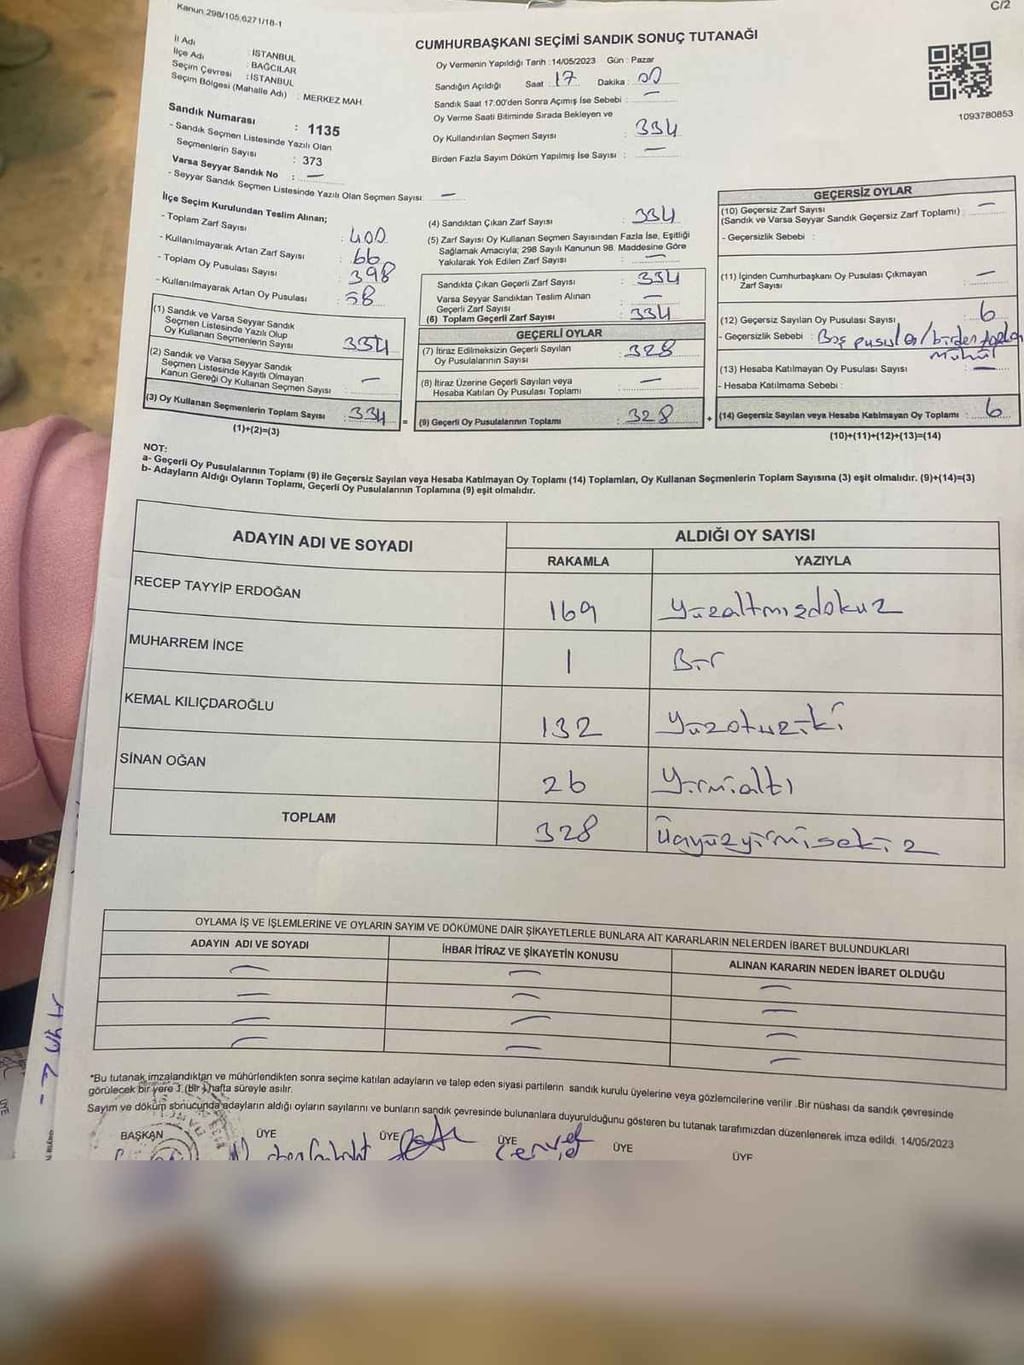 Kanun.298/105,6271/18-1
C/2
İl Adı : İSTANBUL
İlçe Adı : BAĞCILAR
Seçim Çevresi : İSTANBUL
Seçim Bölgesi (Mahalle Adı) : MERKEZ MAH.
Sandık Numarası : 1135
- Sandık Seçmen Listesinde Yazılı Olan
Seçmenlerin Sayısı : 373
Varsa Seyyar Sandık No : —
- Seyyar Sandık Seçmen Listesinde Yazılı Olan Seçmen Sayısı : —
CUMHURBAŞKANI SEÇİMİ SANDIK SONUÇ TUTANAĞI
Oy Vermenin Yapıldığı Tarih : 14/05/2023 Gün : Pazar
Sandığın Açıldığı Saat : 17 Dakika : 00
Sandık Saat 17.00'den Sonra Açımış İse Sebebi : —
Oy Verme Saati Bitiminde Sırada Bekleyen ve
Oy Kullandırılan Seçmen Sayısı : 334
Birden Fazla Sayım Döküm Yapılmış İse Sayısı : —
1093780853
İlçe Seçim Kurulundan Teslim Alınan;
- Toplam Zarf Sayısı : 400
- Kullanılmayarak Artan Zarf Sayısı : 66
- Toplam Oy Pusulası Sayısı : 398
- Kullanılmayarak Artan Oy Pusulası : 58
(1) Sandık ve Varsa Seyyar Sandık
Seçmen Listesinde Yazılı Olup
Oy Kullanan Seçmenlerin Sayısı : 334
(2) Sandık ve Varsa Seyyar Sandık
Seçmen Listesinde Kayıtlı Olmayan
Kanun Gereği Oy Kullanan Seçmen Sayısı : —
(3) Oy Kullanan Seçmenlerin Toplam Sayısı : 334
(1)+(2)=(3)
(4) Sandıktan Çıkan Zarf Sayısı : 334
(5) Zarf Sayısı Oy Kullanan Seçmen Sayısından Fazla İse, Eşitliği
Sağlamak Amacıyla; 298 Sayılı Kanunun 98. Maddesine Göre
Yakılarak Yok Edilen Zarf Sayısı : —
Sandıkta Çıkan Geçerli Zarf Sayısı : 334
Varsa Seyyar Sandıktan Teslim Alınan
Geçerli Zarf Sayısı : —
(6) Toplam Geçerli Zarf Sayısı : 334
GEÇERLİ OYLAR
(7) İtiraz Edilmeksizin Geçerli Sayılan
Oy Pusulalarının Sayısı : 328
(8) İtiraz Üzerine Geçerli Sayılan veya
Hesaba Katılan Oy Pusulası Toplamı : —
= (9) Geçerli Oy Pusulalarının Toplamı : 328 +
GEÇERSİZ OYLAR
(10) Geçersiz Zarf Sayısı
(Sandık ve Varsa Seyyar Sandık Geçersiz Zarf Toplamı) : —
- Geçersizlik Sebebi :
(11) İçinden Cumhurbaşkanı Oy Pusulası Çıkmayan
Zarf Sayısı : —
(12) Geçersiz Sayılan Oy Pusulası Sayısı : 6
- Geçersizlik Sebebi : Boş pusulas/birden fazla
mühür
(13) Hesaba Katılmayan Oy Pusulası Sayısı : —
- Hesaba Katılmama Sebebi :
(14) Geçersiz Sayılan veya Hesaba Katılmayan Oy Toplamı : 6
(10)+(11)+(12)+(13)=(14)
NOT:
a- Geçerli Oy Pusulalarının Toplamı (9) ile Geçersiz Sayılan veya Hesaba Katılmayan Oy Toplamı (14) Toplamları, Oy Kullanan Seçmenlerin Toplam Sayısına (3) eşit olmalıdır. (9)+(14)=(3)
b- Adayların Aldığı Oyların Toplamı, Geçerli Oy Pusulalarının Toplamına (9) eşit olmalıdır.
ADAYIN ADI VE SOYADI ALDIĞI OY SAYISI
RAKAMLA YAZIYLA
RECEP TAYYİP ERDOĞAN 169 Yüzaltmışdokuz
MUHARREM İNCE 1 Bir
KEMAL KILIÇDAROĞLU 132 Yüzotuziki
SİNAN OĞAN 26 Yirmialtı
TOPLAM 328 Üçyüzyirmisekiz
OYLAMA İŞ VE İŞLEMLERİNE VE OYLARIN SAYIM VE DÖKÜMÜNE DAİR ŞİKAYETLERLE BUNLARA AİT KARARLARIN NELERDEN İBARET BULUNDUKLARI
ADAYIN ADI VE SOYADI İHBAR İTİRAZ VE ŞİKAYETİN KONUSU ALINAN KARARIN NEDEN İBARET OLDUĞU
— — —
— — —
— — —
— — —
*Bu tutanak imzalandıktan ve mühürlendikten sonra seçime katılan adayların ve talep eden siyasi partilerin sandık kurulu üyelerine veya gözlemcilerine verilir .Bir nüshası da sandık çevresinde
görülecek bir yere 1 (Bir ) hafta süreyle asılır.
Sayım ve döküm sonucunda adayların aldığı oyların sayılarını ve bunların sandık çevresinde bulunanlara duyurulduğunu gösteren bu tutanak tarafımızdan düzenlenerek imza edildi. 14/05/2023
BAŞKAN ÜYE ÜYE ÜYE ÜYE ÜYE